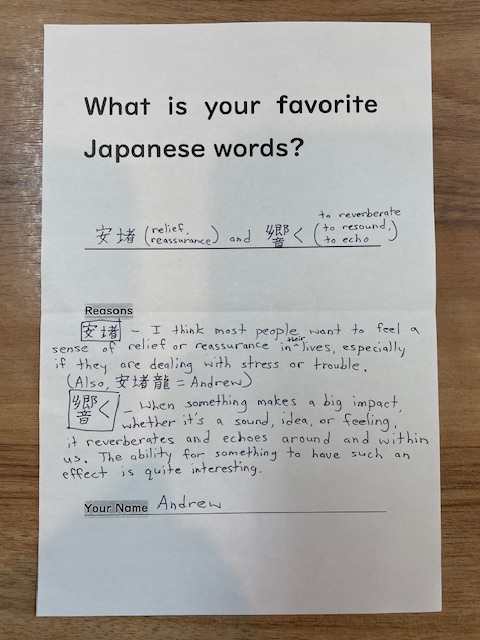 What is your favorite
Japanese words?
安堵 (relief, reassurance) and 響く (to reverberate to resound, to echo)
Reasons
安堵 - I think most people want to feel a
sense of relief or reassurance in their lives, especially
if they are dealing with stress or trouble.
(Also, 安堵龍 = Andrew)
響く - When something makes a big impact,
whether it's a sound, idea, or feeling,
it reverberates and echoes around and within
us. The ability for something to have such an
effect is quite interesting.
Your Name Andrew